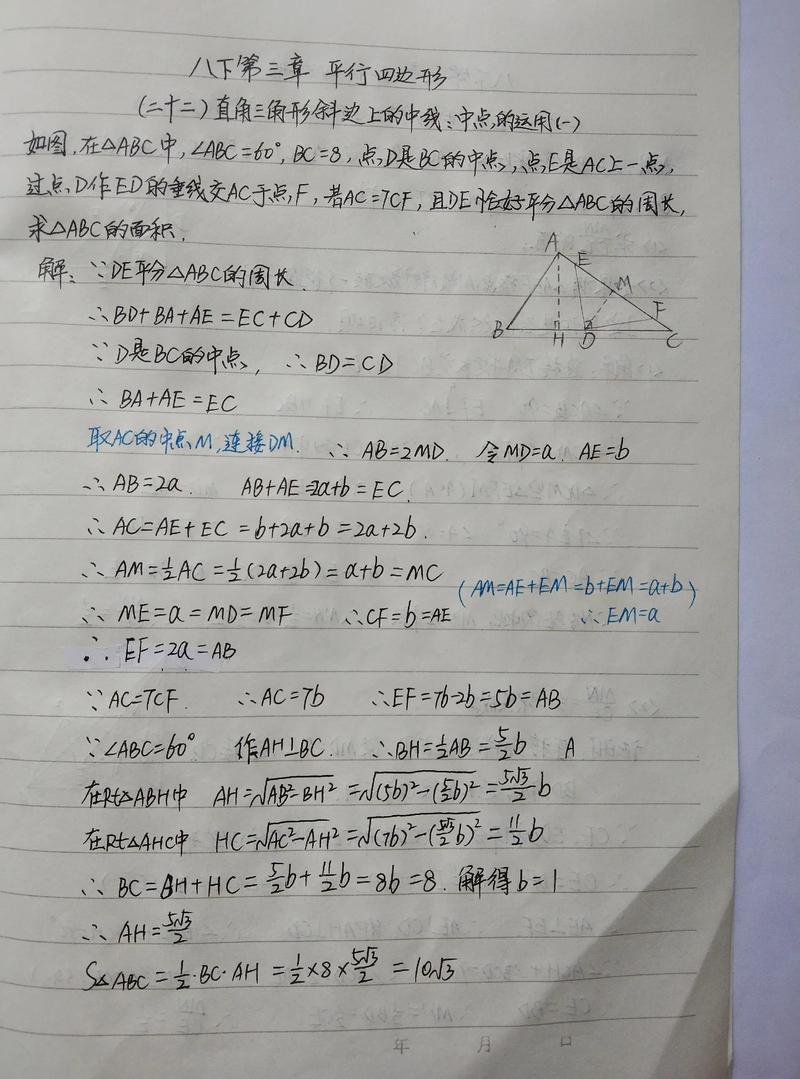 八下第三章 平行四边形
(二十二)直角三角形斜边上的中线;中点的运用(一)
如图,在△ABC中,∠ABC=60°,BC=8,点D是BC的中点,点E是AC上一点,
过点D作ED的垂线交AC于点F,若AC=7CF,且DE恰好平分△ABC的周长,
求△ABC的面积.
解:∵DE平分△ABC的周长
∴BD+BA+AE=EC+CD
∵D是BC的中点, ∴BD=CD
∴ BA+AE=EC
A
E
M
F
B
H
D
C
取AC的中点M,连接DM. ∴ AB=2MD. 令MD=a. AE=b
∴AB=2a. AB+AE=2a+b=EC.
∴AC=AE+EC=b+2a+b=2a+2b.
∴ AM=½AC=½(2a+2b)=a+b=MC
(AM=AE+EM=b+EM=a+b)
∴ ME=a=MD=MF ∴CF=b=AE ∴EM=a
∴ EF=2a=AB
∵AC=7CF. ∴AC=7b ∴EF=7b-2b=5b=AB
∵∠ABC=60° 作AH⊥BC. ∴BH=½AB=5/2b A
在Rt△ABH中 AH=√(AB²-BH²)=√((5b)²-(5/2b)²)=5√3/2b
在Rt△AHC中 HC=√(AC²-AH²)=√((7b)²-(5√3/2b)²)=11/2b
∴ BC=BH+HC=5/2b+11/2b=8b=8. 解得b=1
∴ AH=5√3/2
S△ABC=½·BC·AH=½×8×5√3/2=10√3
年 月 日